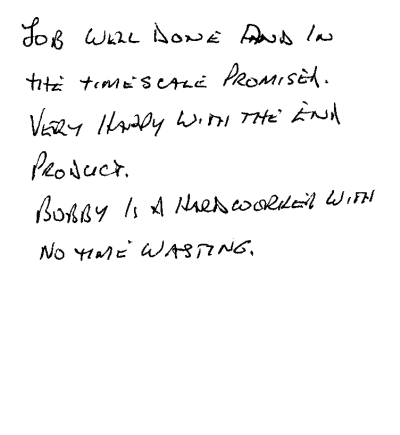 JOB WELL DONE AND IN
THE TIMESCALE PROMISED.
VERY HAPPY WITH THE END
PRODUCT.
BOBBY IS A HARDWORKER WITH
NO TIME WASTING.